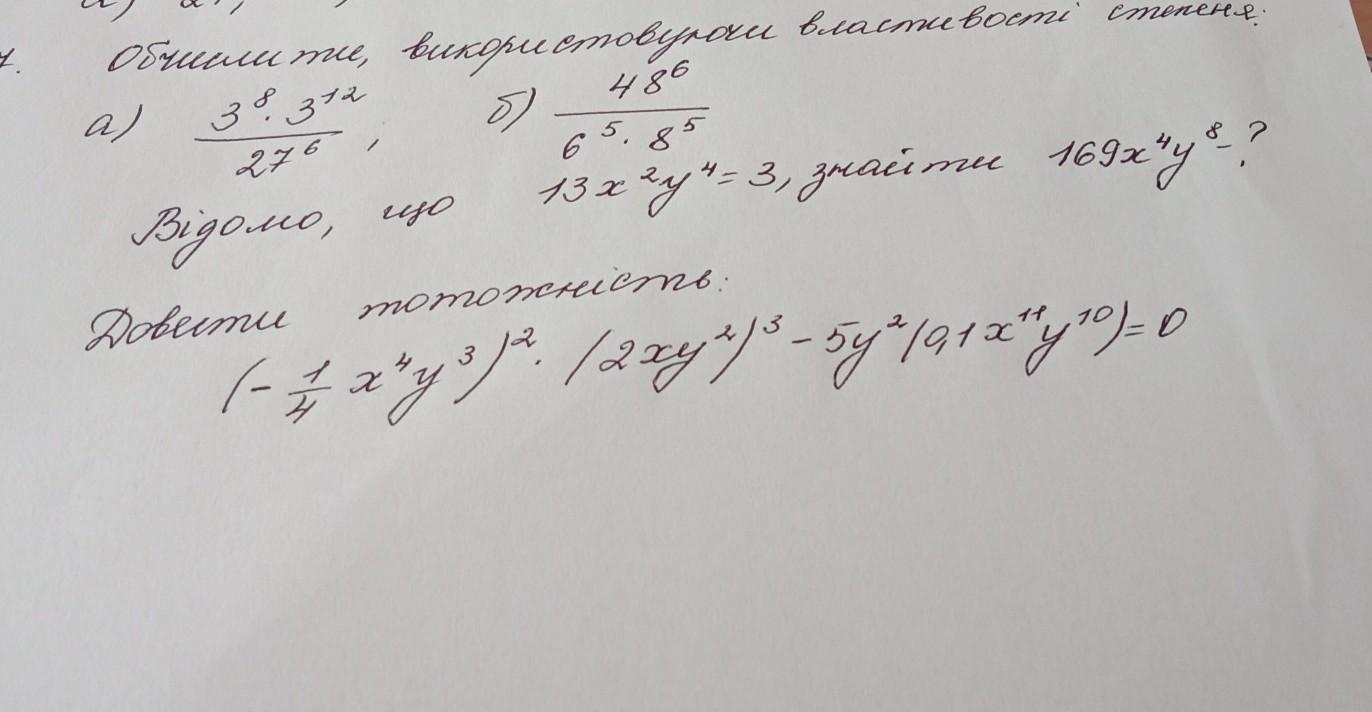 Обчислити, використовуючи властивості степеня:
а) 3⁸·3¹²/27⁶, б) 48⁶/6⁵·8⁵
Відомо, що 13x²y⁴=3, знайти 169x⁴y⁸-?
Довести тотожність:
(-1/4 x⁴y³)²·(2xy²)³-5y²(0,1x¹¹y¹⁰)=0